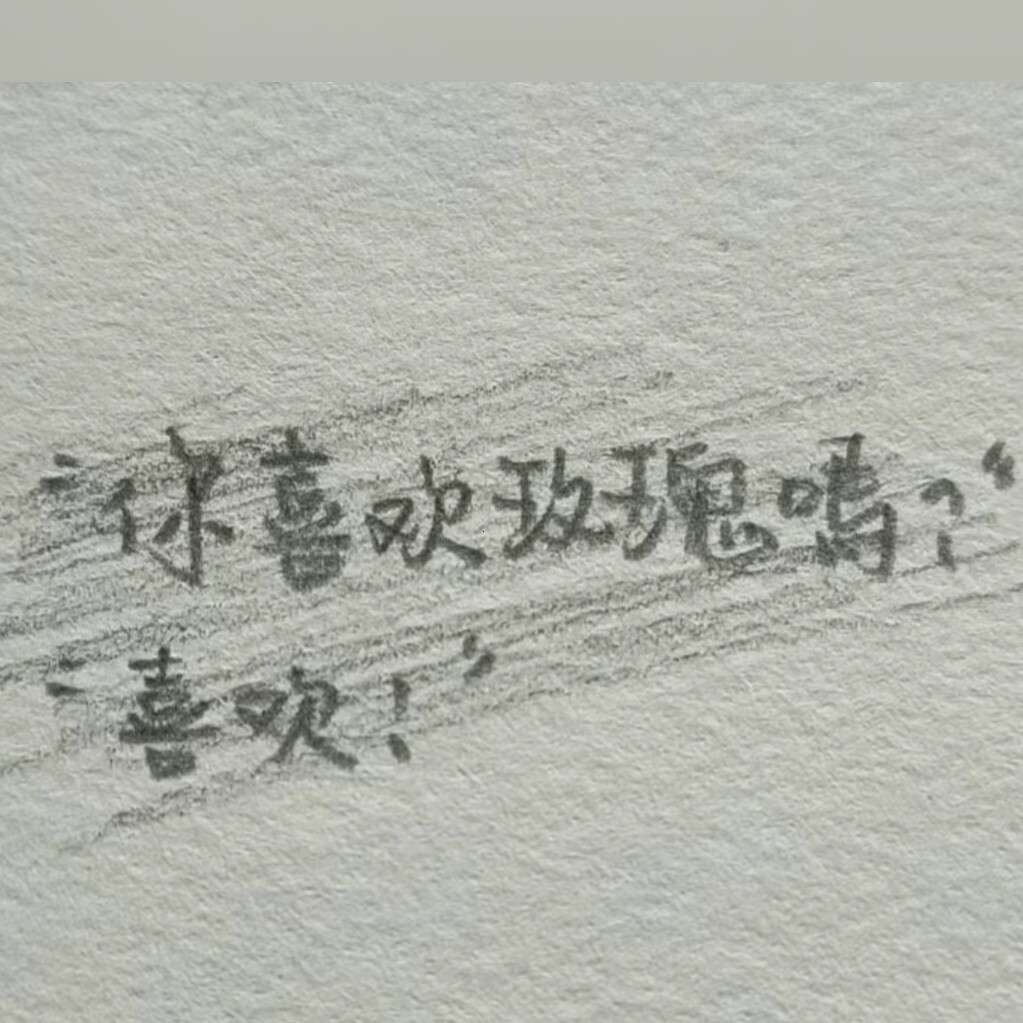 “你喜欢玫瑰吗？”
“喜欢！”